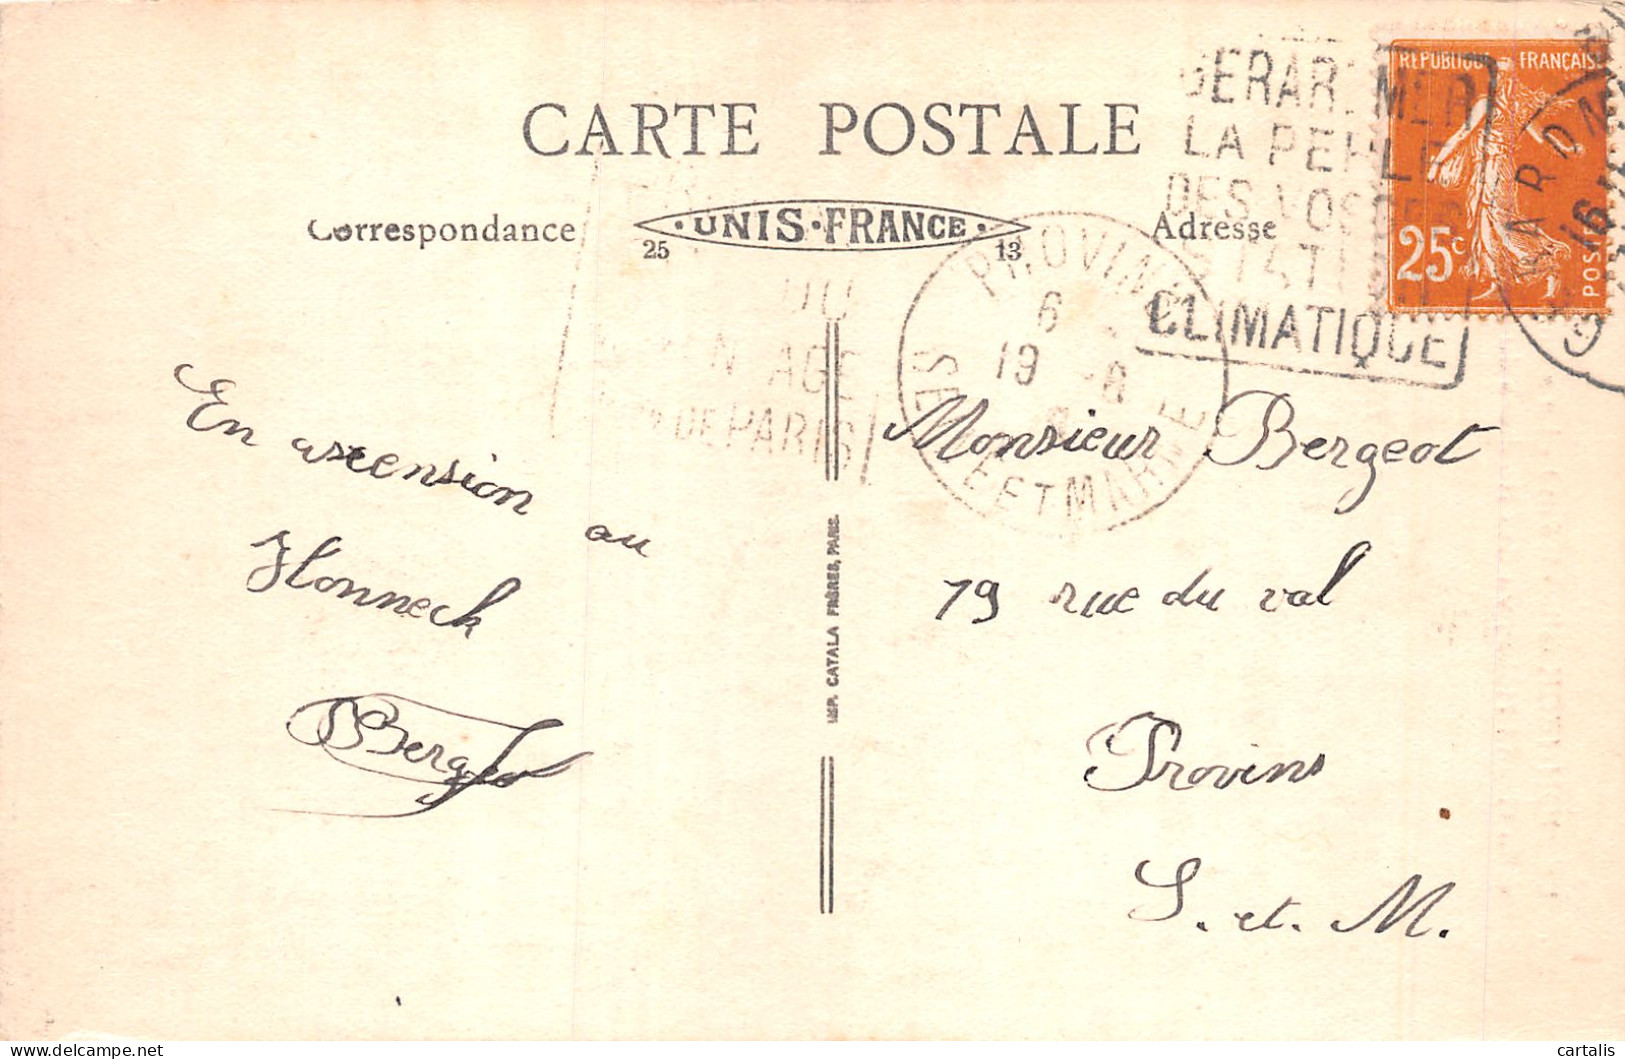 CARTE POSTALE
Correspondance
UNIS·FRANCE
25 13
Adresse
GERARDMER
LA PERLE
DES VOSGES
STATION
CLIMATIQUE
REPUBLIQUE FRANÇAISE
25c
POSTES
PROVINS
6
19 -8
SEINE ET MARNE
DU
MOYEN AGE
DE PARIS
16
En ascension au
Honneck
Bergeot
IMP. CATALA FRÈRES, PARIS.
Monsieur Bergeot
19 rue du val
Provins
S. et. M.
cartalis